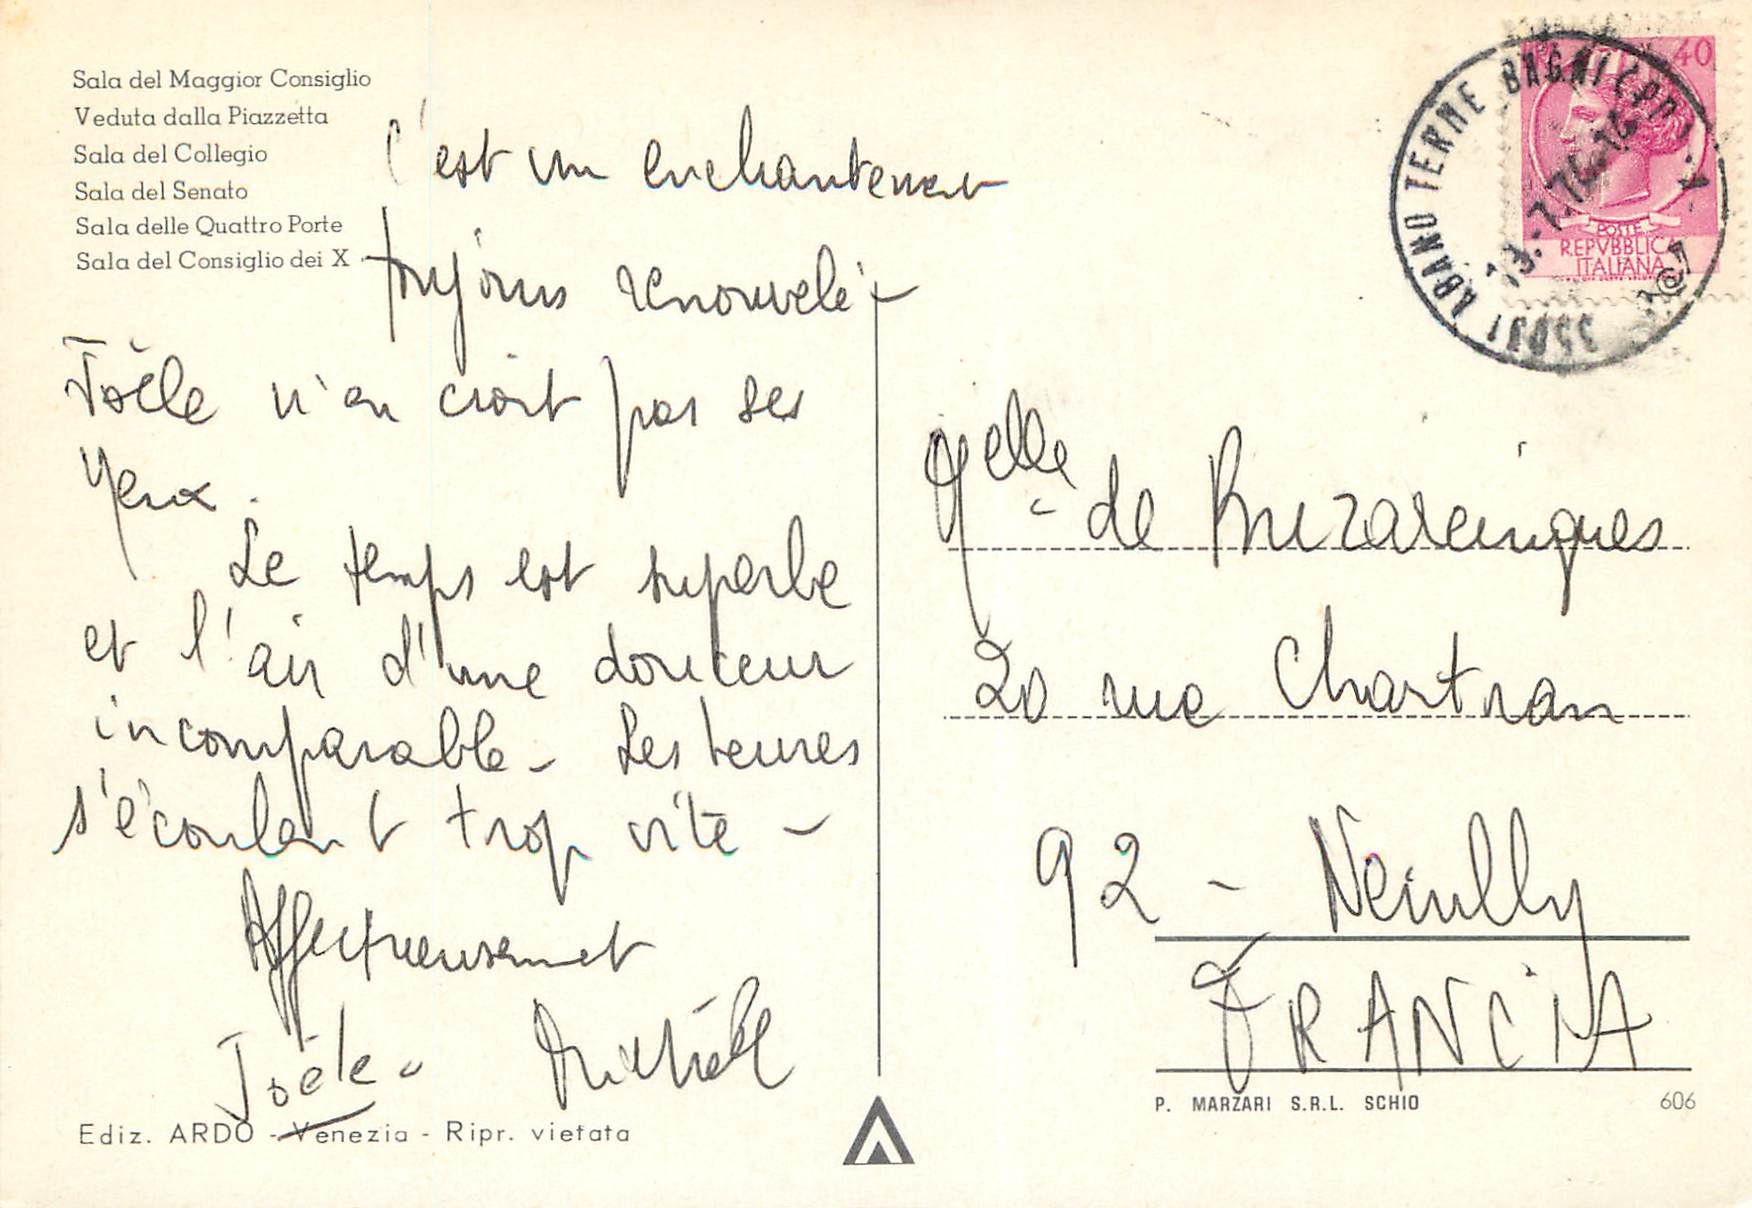 Sala del Maggior Consiglio
Veduta dalla Piazzetta
Sala del Collegio
Sala del Senato
Sala delle Quattro Porte
Sala del Consiglio dei X
C'est un enchantement
toujours renouvelé -
Joëlle n'en croit pas ses
yeux.
Le temps est superbe
et l'air d'une douceur
incomparable - Les heures
s'écoulent trop vite -
Affectueusement
Joële - Michèle
Ediz. ARDO - Venezia - Ripr. vietata
40
POSTE
REPVBBLICA
ITALIANA
35031 ABANO TERME BAGNI (PD)
13.-7.76
Melle de Buzareingues
20 rue Chartran
92 - Neuilly
FRANCIA
P. MARZARI S.R.L. SCHIO
606